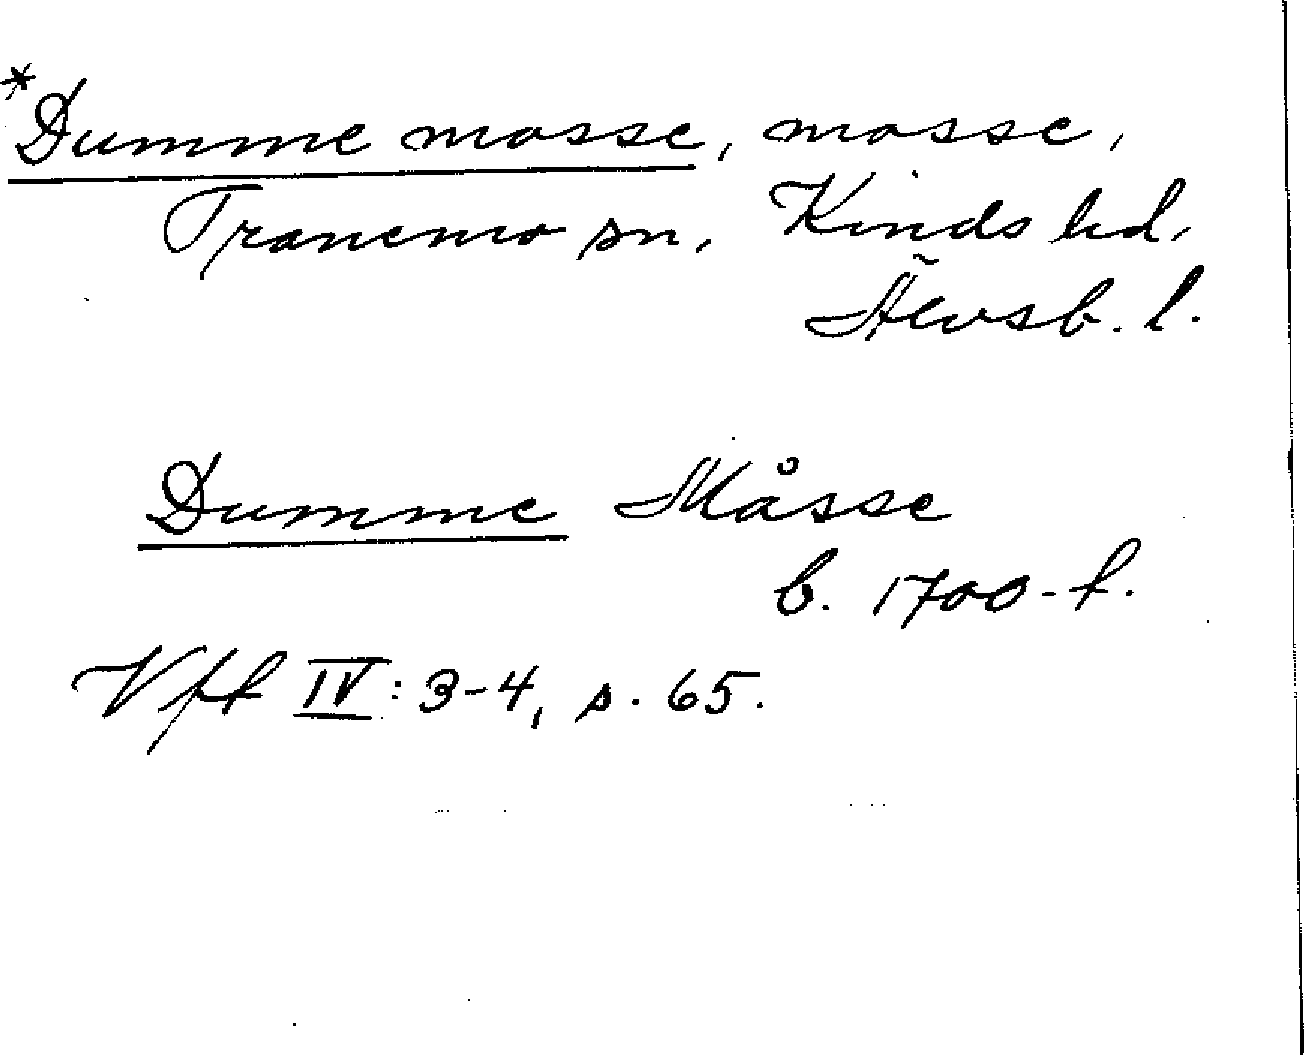 *Dumme mosse, mosse,
Tranemo sn, Kinds hd,
Älvsb. l.
Dumme Måsse
b. 1700-t.
Vff IV: 3-4, s. 65.